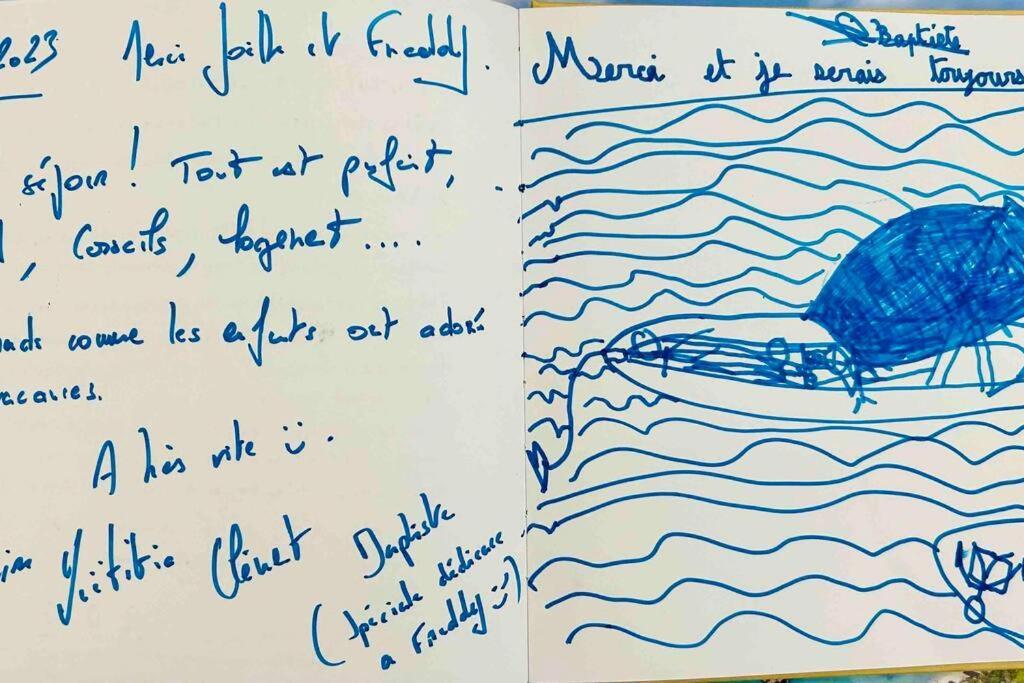 2023 Merci Joëlle et Freddy.
séjour ! Tout est parfait,
, Conseils, logement....
comme les enfants ont adoré
vacances.
A très vite
Clément Baptiste
(spéciale dédicace
a Freddy )
Baptiste
Merci et je serais toujours